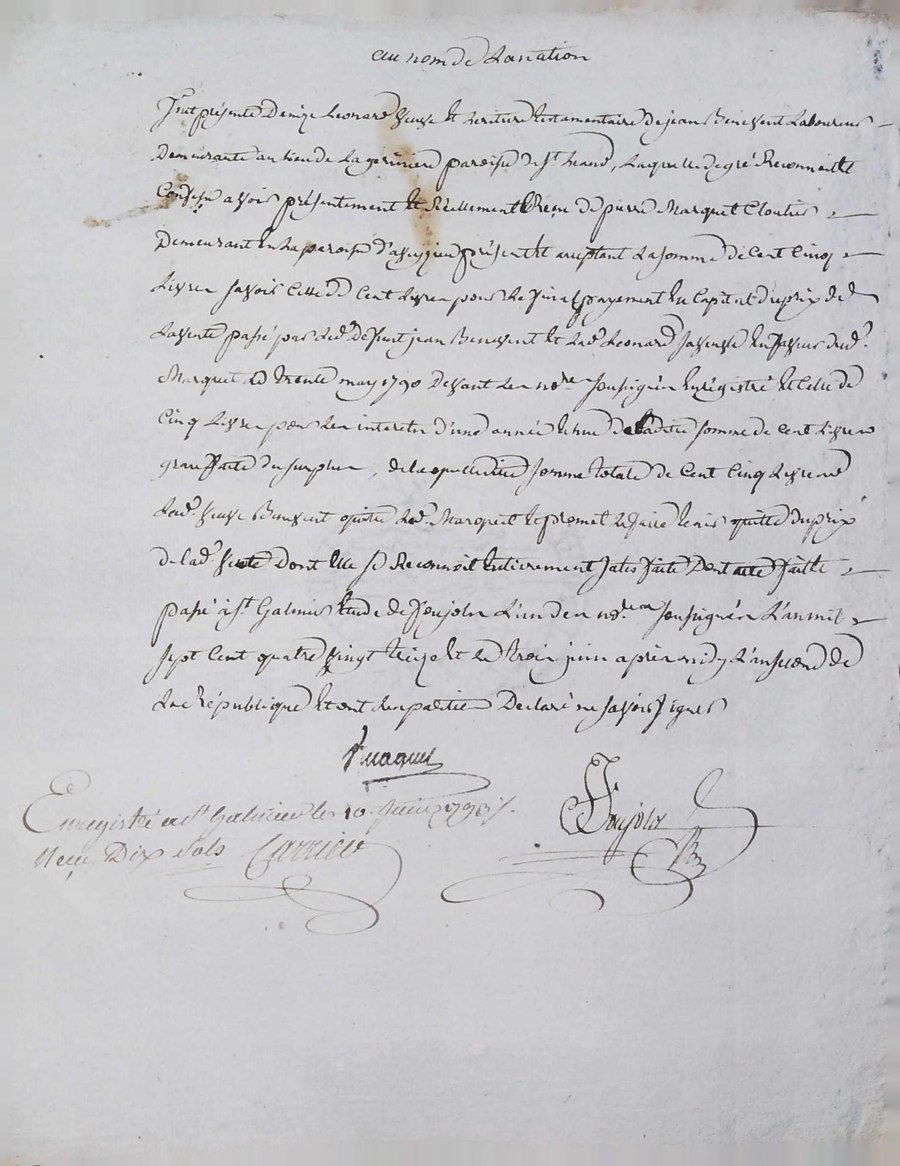 au nom de la nation
fut présente Denize Leonard veuve et heritiere testamentaire de jean Benevent Laboureur
Demeurante au lieu de La parroisse de St heand, Laquelle de gré Reconnoit et
Confesse avoir présentement et Réellement Reçu de pierre Marquet Cloutier
Demeurant en la paroisse d'aveyzieu présent et acceptant La somme de Cent Cinq
Livres savoir Celle de Cent Livres pour Le final payement en Capital du prix de
La vente passé par led. Défunt jean Benevent et lad. Leonard sa veuve en faveur dud.
Marquet Le trente may 1790 Devant Les nore soussignés enrégistré et Celle de
Cinq Livres pour Les interets d'une année echue de ladite somme de Cent Livres
grace faite du surplus, de laquelle dite somme totale de Cent Cinq Livres
Lad. veuve Benevent quitte led. Marquet et promet le faire tenir quitte du prix
de lad. vente Dont elle se Reconnoit entierement satisfaite Dont acte fait et
passé à St Galmier étude de Poujolz L'un des nores soussignés L'an mil
sept Cent quatre vingt treize et Le trois juin après midy L'an second de
La République et ont les parties Declaré ne savoir signer
Poujolz
Enregistré a St Galmier le 10. Juin 1793
Reçu Dix sols Carrier